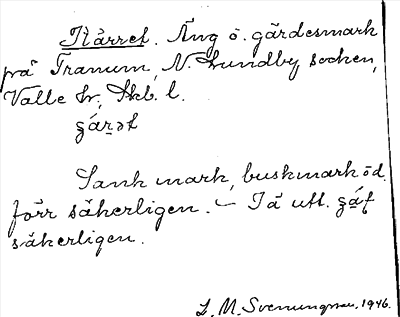 Kärret. Äng o. gärdesmark
på Tranum, N. Lundby socken,
Valle hr, Skb. l.
Sank mark, buskmark öd.
förr säkerligen. – Ja utt.
säkerligen.
L. M. Svenungsson. 1946.